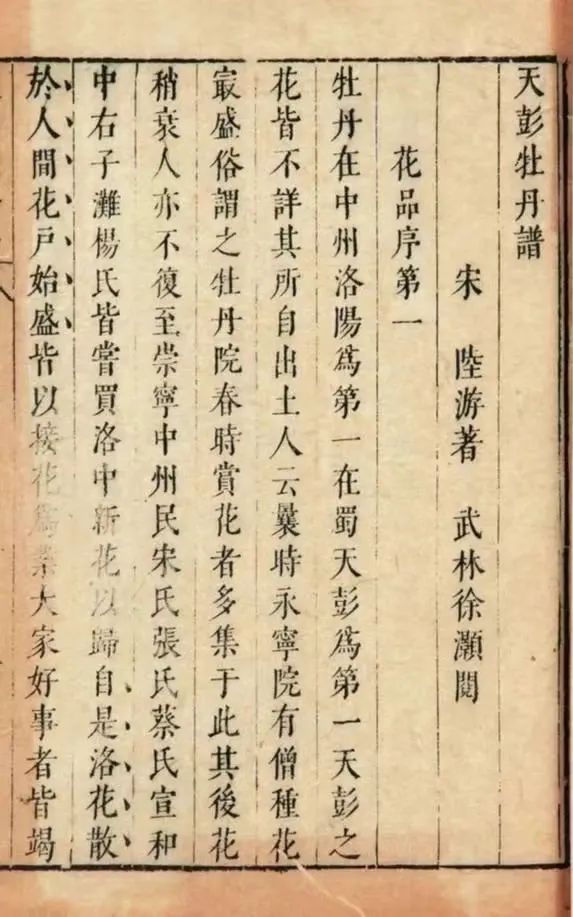 天彭牡丹譜
宋 陸游著 武林徐灝閱
花品序第一
牡丹在中州洛陽爲第一在蜀天彭爲第一天彭之
花皆不詳其所自出土人云曩時永寧院有僧種花
㝡盛俗謂之牡丹院春時賞花者多集于此其後花
稍衰人亦不復至崇寧中州民宋氏張氏蔡氏宣和
中右子灘楊氏皆嘗買洛中新花以歸自是洛花散
於人間花戶始盛皆以接花爲業大家好事者皆竭